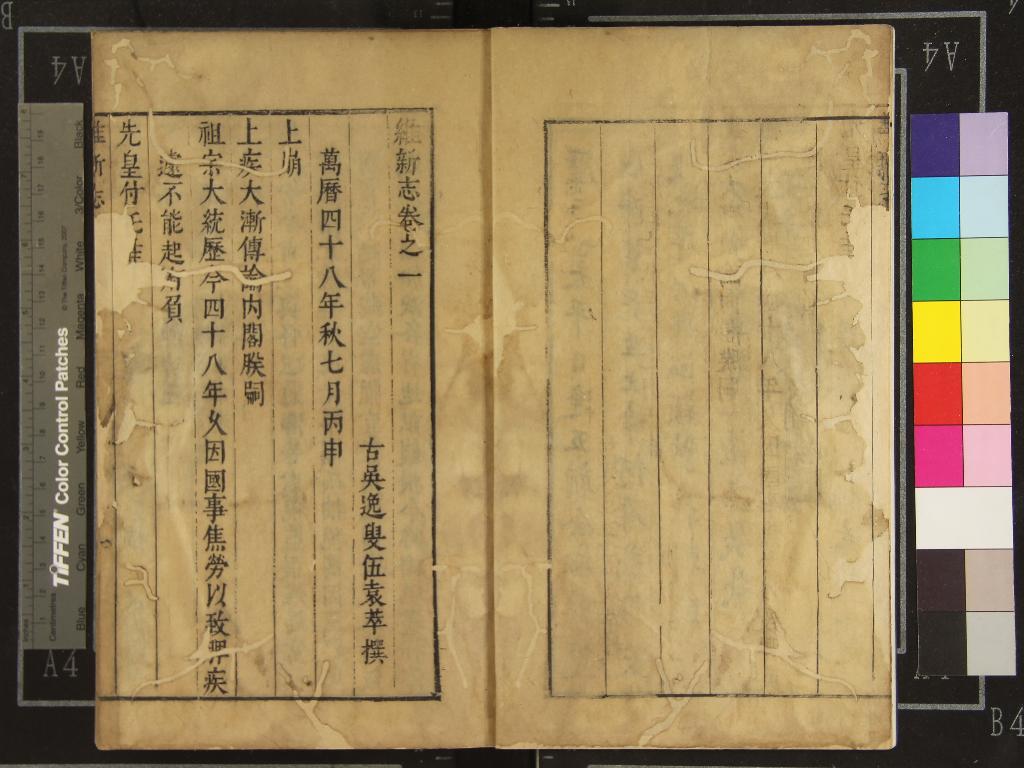 維新志卷之一
古吳逸叟伍袁萃撰
萬曆四十八年秋七月丙申
上崩
上疾大漸傳諭內閣朕嗣
祖宗大統歷今四十八年久因國事焦勞以致脾疾
遽不能起有負
先皇付托惟
維新志
TIFFEN Color Control Patches
© The Tiffen Company, 2007
Centimetres
Inches
Blue
Cyan
Green
Yellow
Red
Magenta
White
3/Color
Black
A4
A4
A4
B4
B